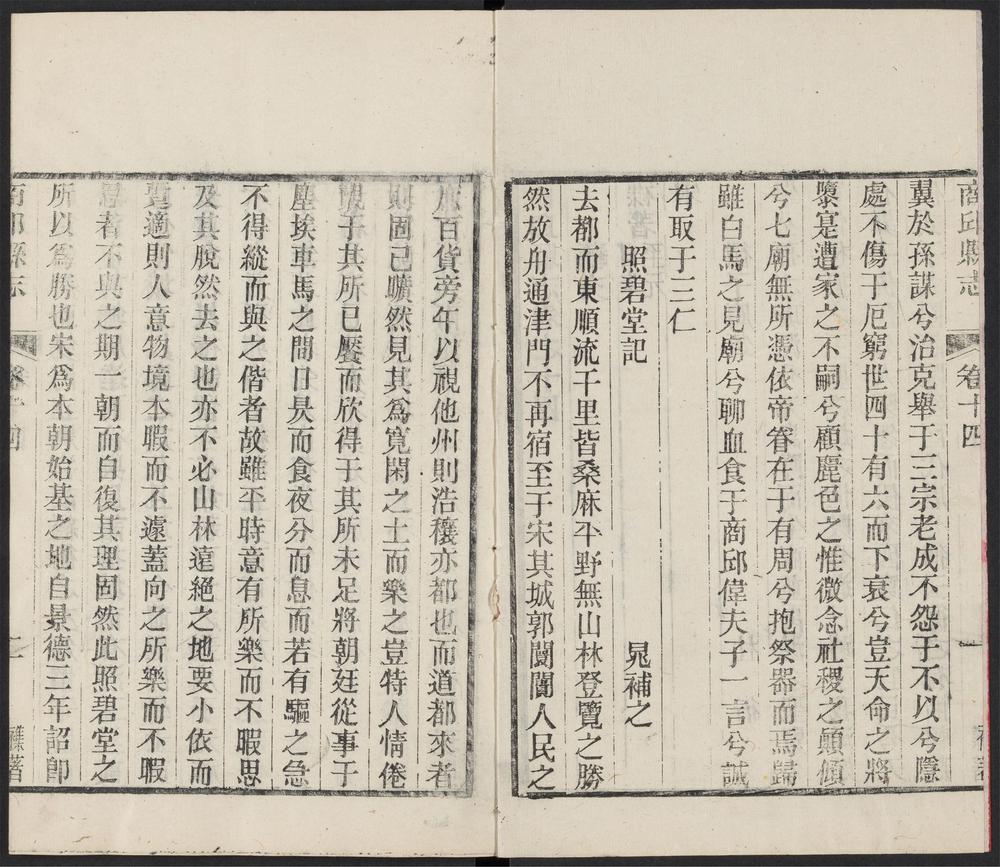 商邱縣志 卷十四 一
冀於孫謀兮治克舉于三宗老成不怨于不以兮隱
處不傷于厄窮世四十有六而下衰兮豈天命之將
墜寔遭家之不嗣兮顧麗色之惟微念社稷之顛傾
兮七廟無所憑依帝眷在于有周兮抱祭器而焉歸
雖白馬之見廟兮聊血食于商邱偉夫子一言兮誠
有取于三仁
照碧堂記 晁補之
去都而東順流千里皆桑麻平野無山林登覽之勝
然放舟通津門不再宿至于宋其城郭闤闠人民之
庶百貨旁午以視他州則浩穰亦都也而道都來者
則固已曠然見其爲寬閑之土而樂之豈特人情倦
覯于其所已饜而欣得于其所未足將朝廷從事于
塵埃車馬之間日昃而食夜分而息而若有驅之急
不得縱而與之偕者故雖平時意有所樂而不暇思
及其脫然去之也亦不必山林遠絕之地要小依而
暫適則人意物境本暇而不遽蓋向之所樂而不暇
思者不與之期一朝而自復其理固然此照碧堂之
所以爲勝也宋爲本朝始基之地自景德三年詔卽
商邱縣志 卷十四 二 雜著